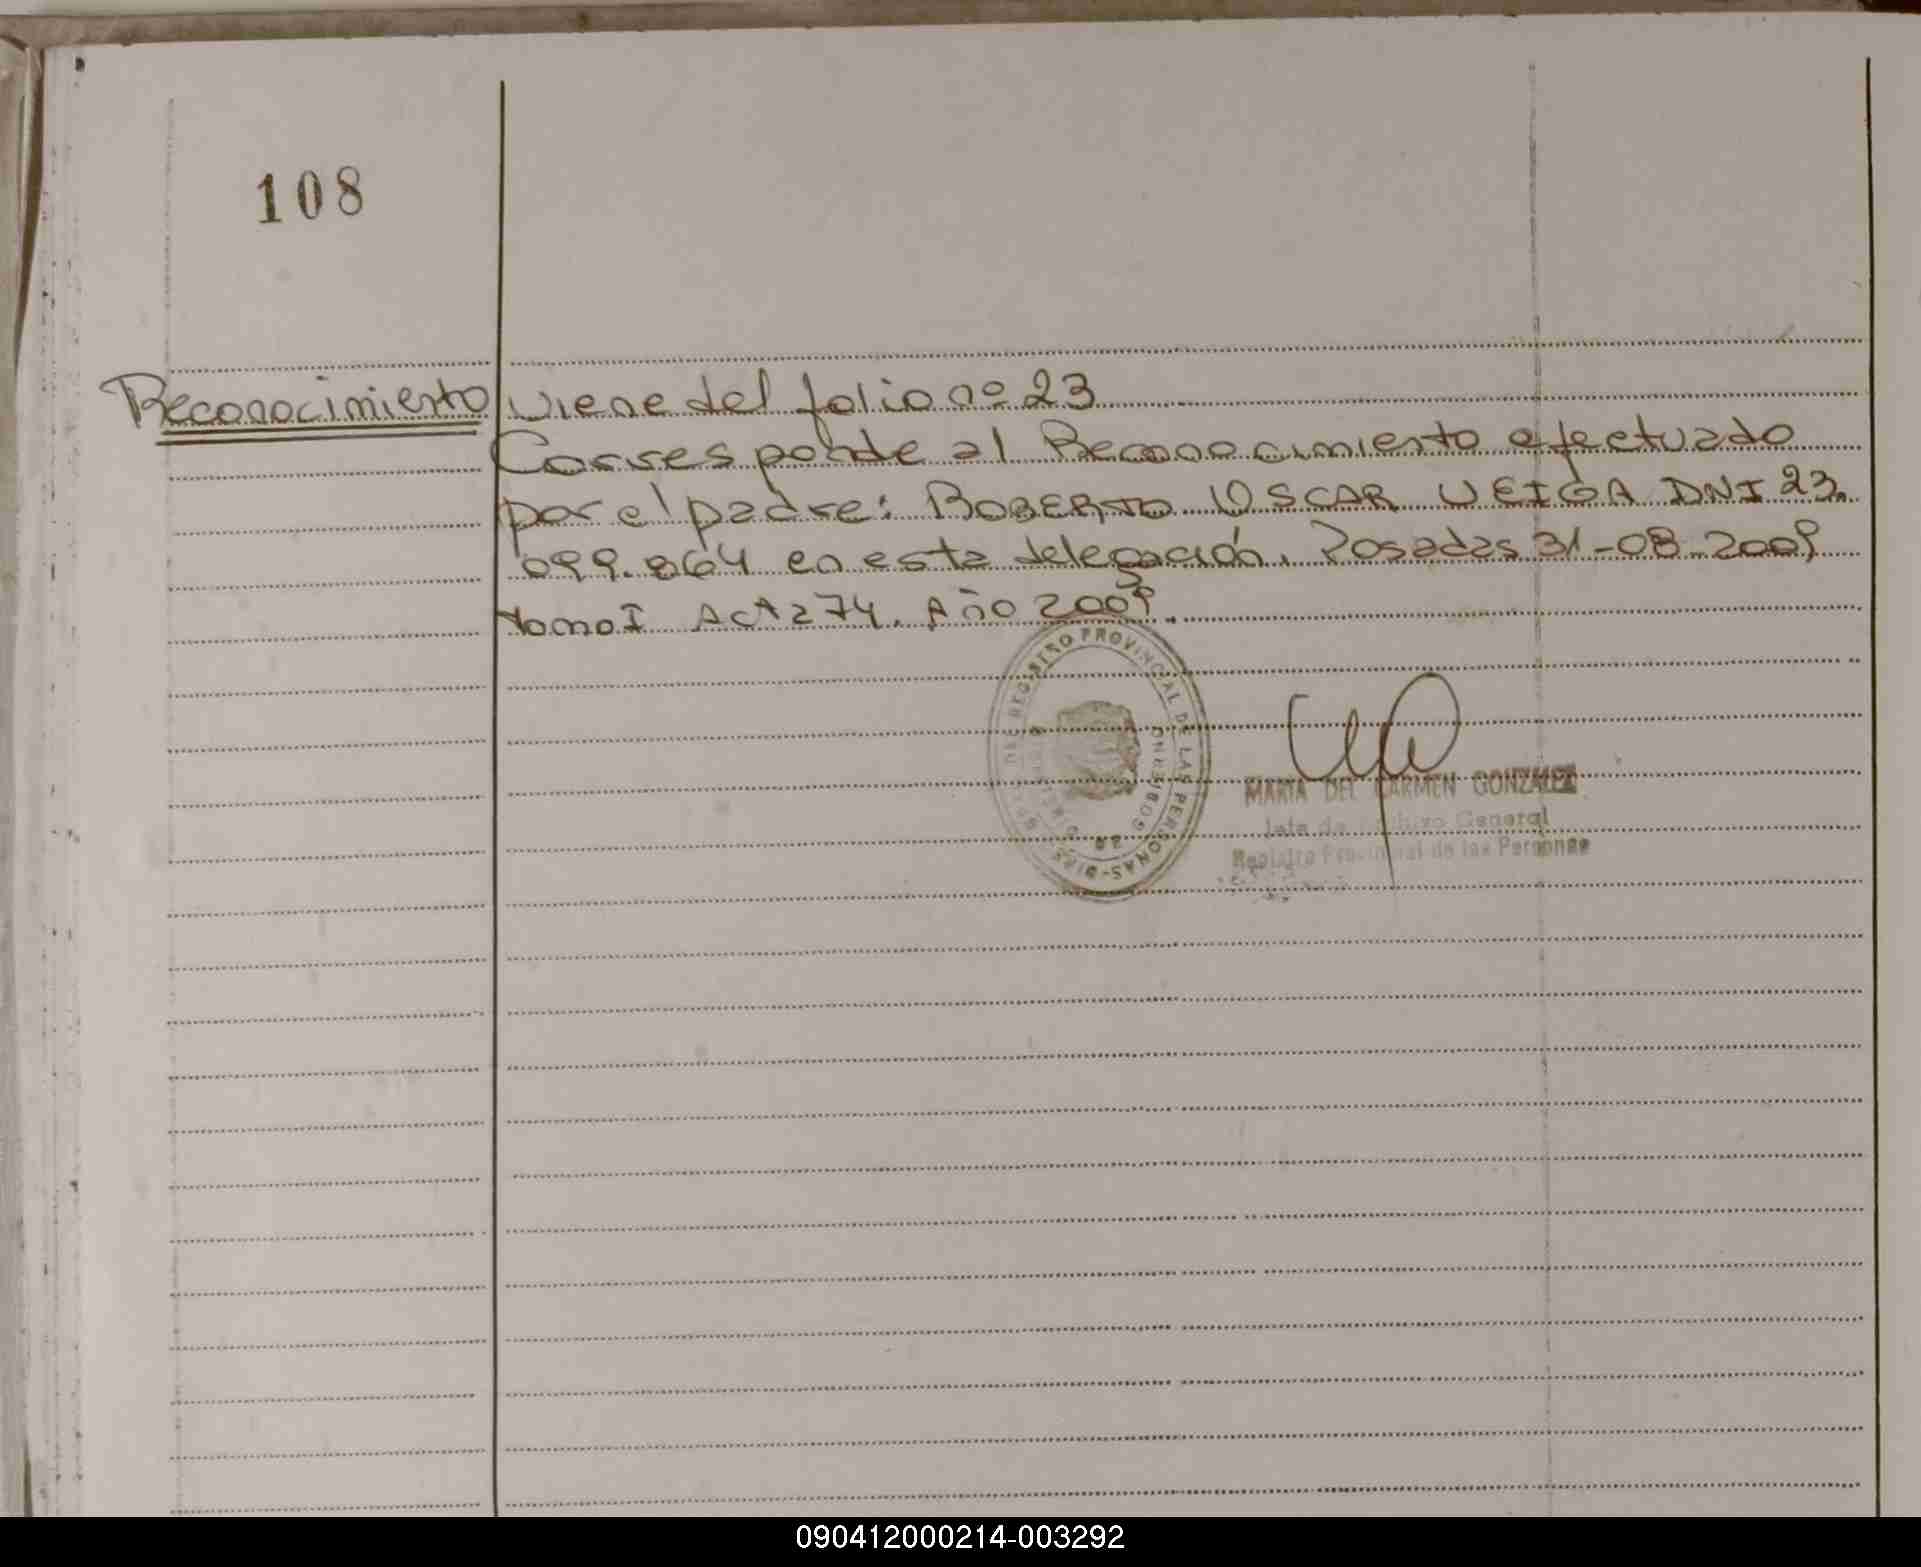 108
Reconocimiento viene del folio nº 23
Corresponde al Reconocimiento efectuado
por el padre: ROBERTO OSCAR VEIGA DNI 23.
099.864 en esta delegación. Posadas 31-08-2009
tomo I Acta 74. Año 2009.
REGISTRO PROVINCIAL DE LAS PERSONAS
MARIA DEL CARMEN GONZALEZ
General
Registro Provincial de las Personas
090412000214-003292